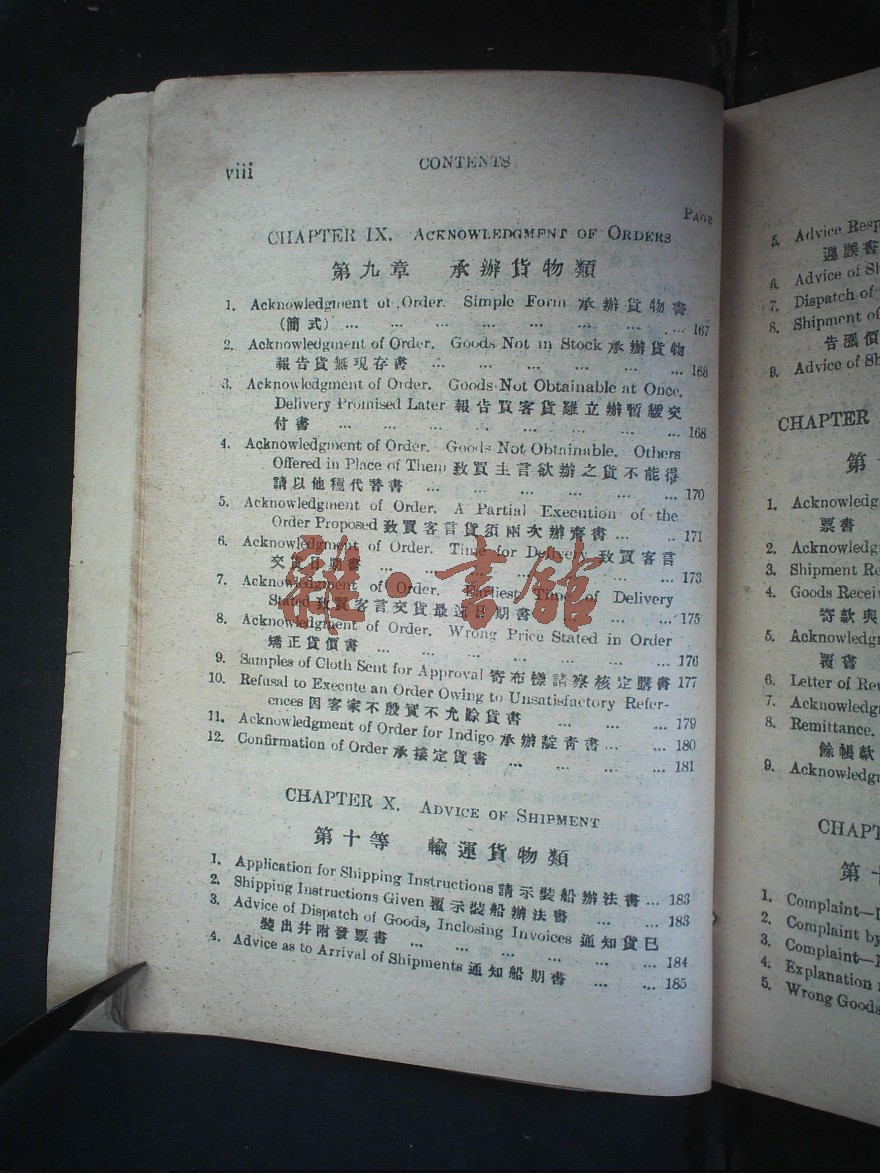 viii
CONTENTS
PAGE
CHAPTER IX. ACKNOWLEDGMENT OF ORDERS
第九章 承辦貨物類
1. Acknowledgment of Order. Simple Form 承辦貨物書
(簡式) ... ... ... ... ... ... ... ... 167
2. Acknowledgment of Order. Goods Not in Stock 承辦貨物
報告貨無現存書 ... ... ... ... ... ... 168
3. Acknowledgment of Order. Goods Not Obtainable at Once.
Delivery Promised Later 報告買客貨難立辦暫緩交
付書 ... ... ... ... ... ... ... ... 168
4. Acknowledgment of Order. Goods Not Obtainable. Others
Offered in Place of Them 致買主言欲辦之貨不能得
請以他種代替書 ... ... ... ... ... ... 170
5. Acknowledgment of Order. A Partial Execution of the
Order Proposed 致買客言貨須兩次辦齊書 ... ... 171
6. Acknowledgment of Order. Time for Delivery 致買客言
交貨日期書 ... ... ... ... ... ... ... 173
7. Acknowledgment of Order. Earliest Time of Delivery
Stated 致買客言交貨最速日期書 ... ... ... 175
8. Acknowledgment of Order. Wrong Price Stated in Order
矯正貨價書 ... ... ... ... ... ... ... 176
9. Samples of Cloth Sent for Approval 寄布樣請察核定購書 177
10. Refusal to Execute an Order Owing to Unsatisfactory Refer-
ences 因客家不殷實不允賒貨書 ... ... ... 179
11. Acknowledgment of Order for Indigo 承辦靛青書 ... ... 180
12. Confirmation of Order 承接定貨書 ... ... ... ... 181
CHAPTER X. ADVICE OF SHIPMENT
第十等 輸運貨物類
1. Application for Shipping Instructions 請示裝船辦法書 ... 183
2. Shipping Instructions Given 覆示裝船辦法書 ... ... 183
3. Advice of Dispatch of Goods, Inclosing Invoices 通知貨已
裝出并附發票書 ... ... ... ... ... ... 184
4. Advice as to Arrival of Shipments 通知船期書 ... ... 185
雜·書館
5. Advice Resp
遲誤書
6. Advice of Sh
7. Dispatch of
8. Shipment of
告漲價
9. Advice of Sh
CHAPTER
第十
1. Acknowledg
票書
2. Acknowledg
3. Shipment Re
4. Goods Receiv
寄款與
5. Acknowledgm
覆書
6. Letter of Rem
7. Acknowledgm
8. Remittance.
餘帳款
9. Acknowledgm
CHAPT
第十
1. Complaint—
2. Complaint by
3. Complaint—
4. Explanation
5. Wrong Goods